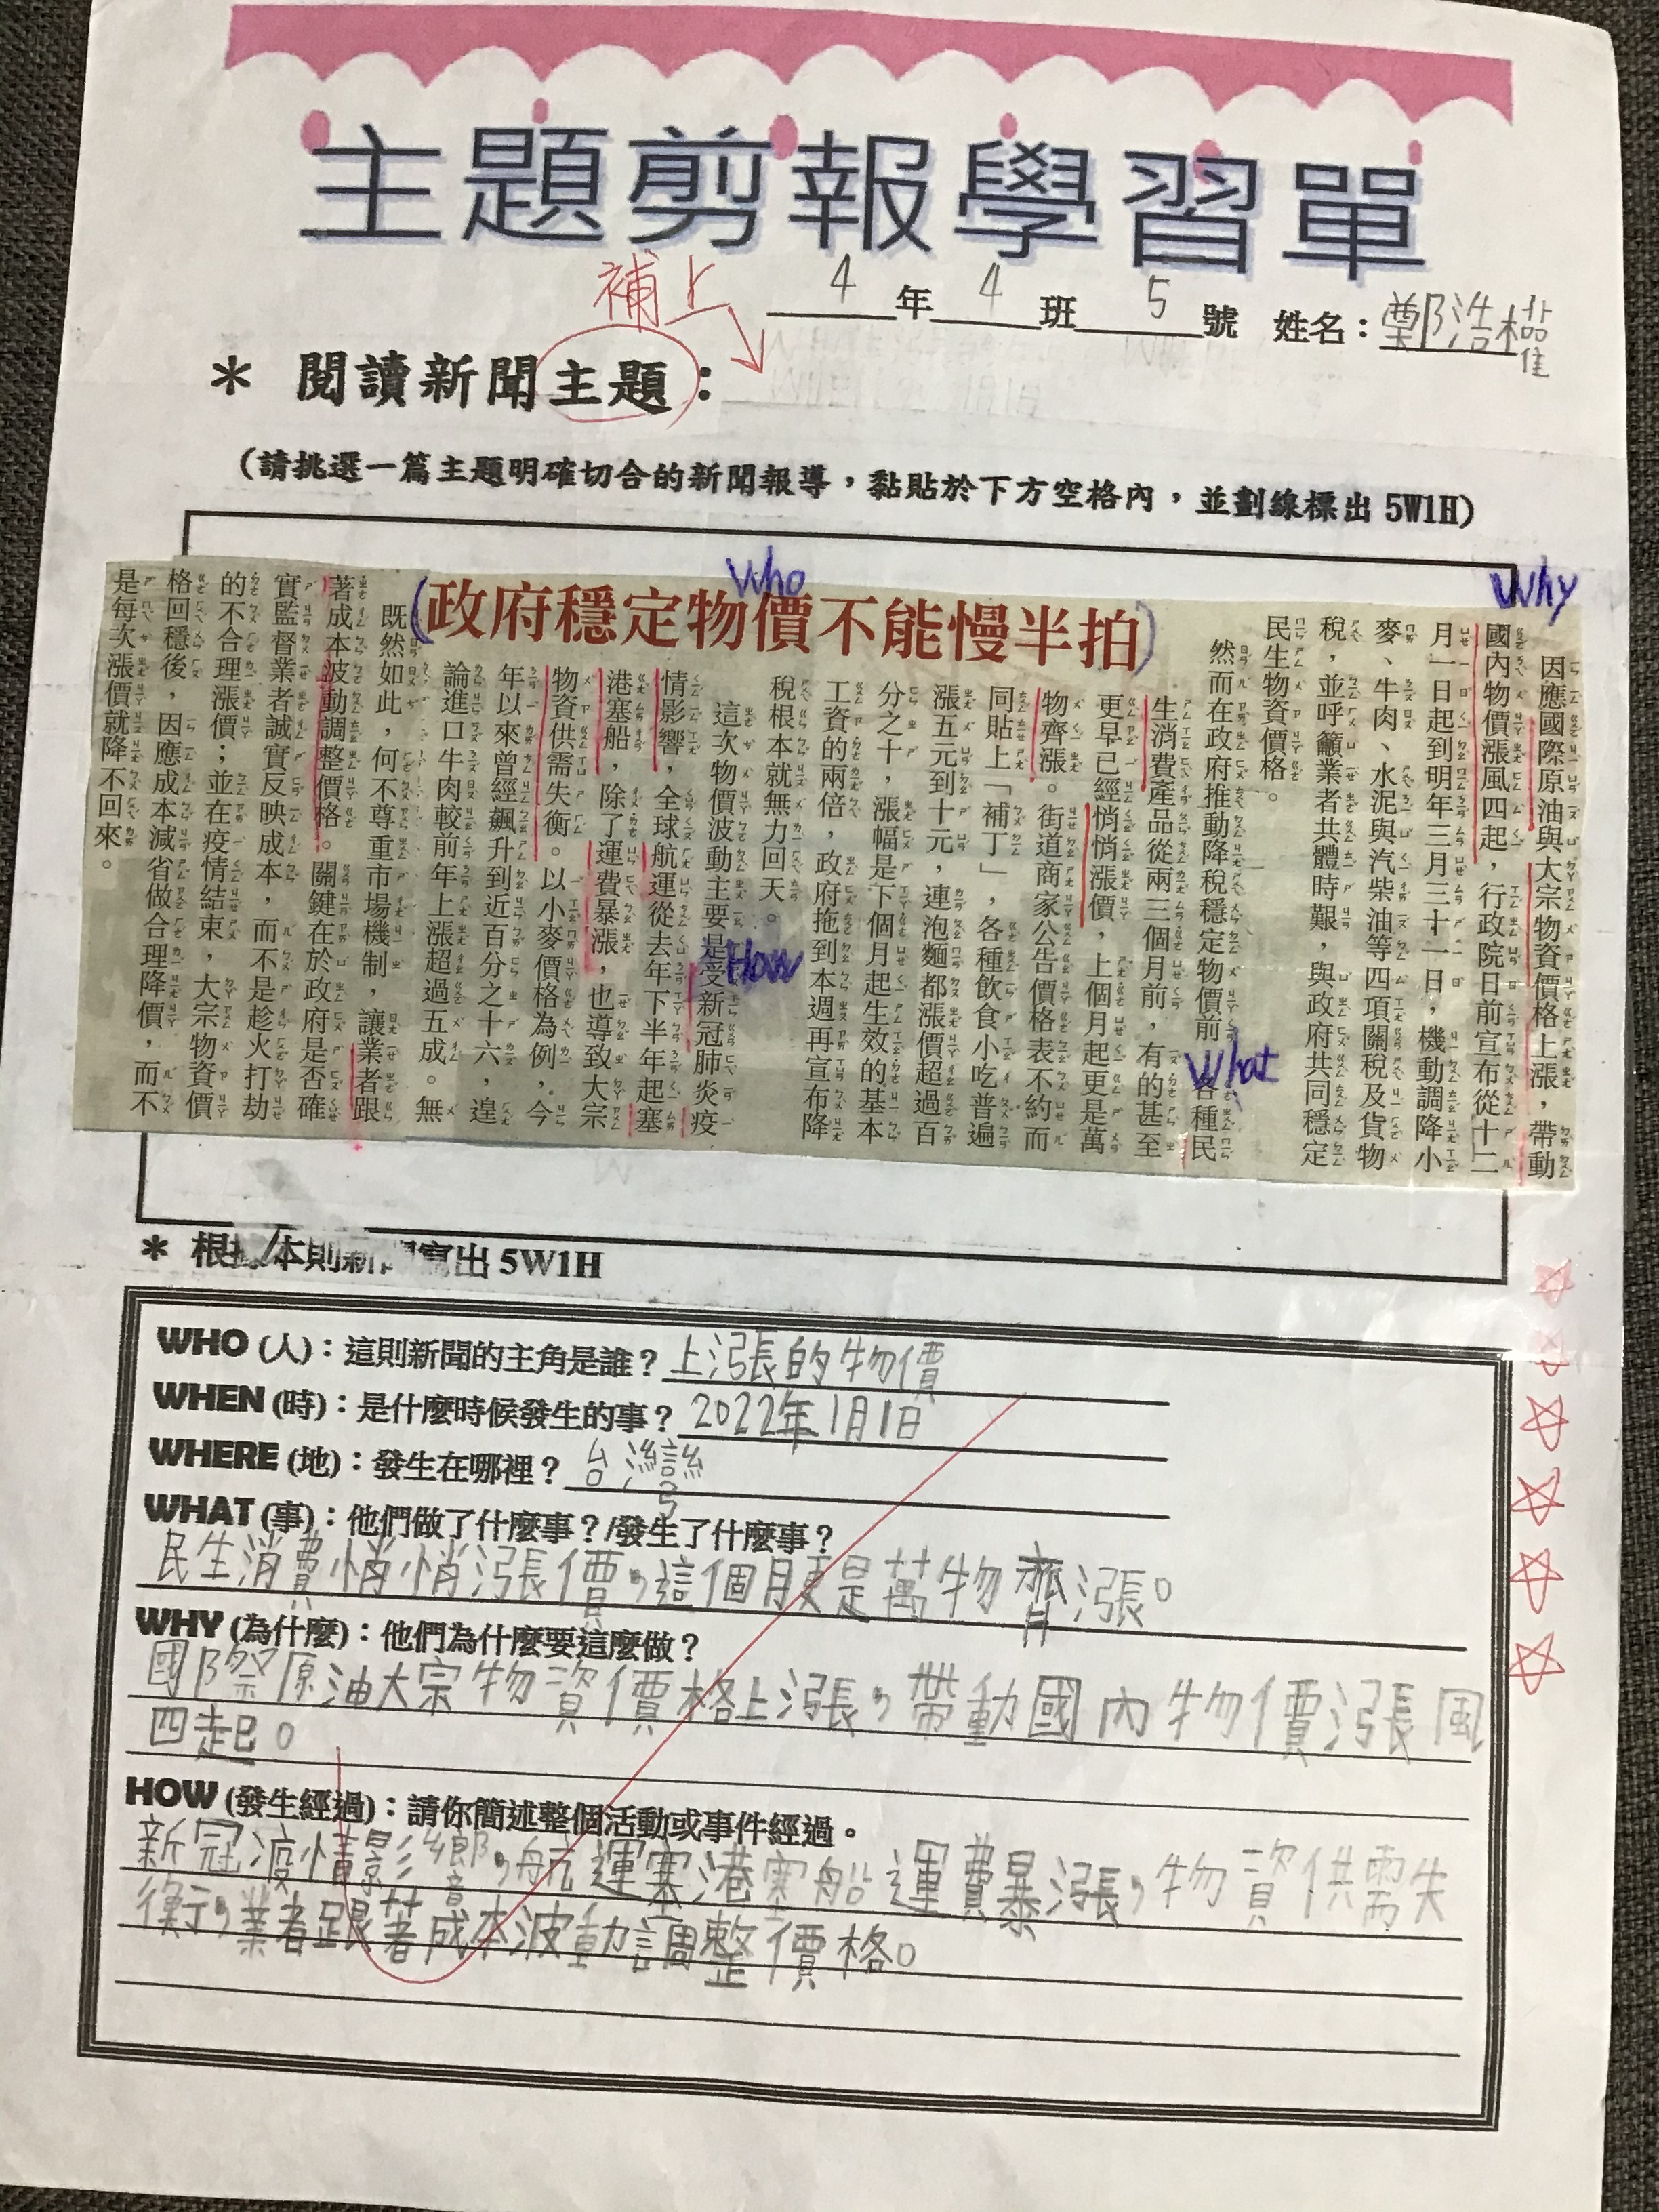 主題剪報學習單
補上
4年4班5號 姓名：鄭浩櫂
＊ 閱讀新聞主題：
（請挑選一篇主題明確切合的新聞報導，黏貼於下方空格內，並劃線標出 5W1H）
Who
Why
（政府穩定物價不能慢半拍）
因應國際原油與大宗物資價格上漲，帶動
國內物價漲風四起，行政院日前宣布從十二
月一日起到明年三月三十一日，機動調降小
麥、牛肉、水泥與汽柴油等四項關稅及貨物
稅，並呼籲業者共體時艱，與政府共同穩定
民生物資價格。
What
然而在政府推動降稅穩定物價前，各種民
生消費產品從兩三個月前，有的甚至
更早已經悄悄漲價，上個月起更是萬
物齊漲。街道商家公告價格表不約而
同貼上「補丁」，各種飲食小吃普遍
漲五元到十元，連泡麵都漲價超過百
分之十，漲幅是下個月起生效的基本
工資的兩倍，政府拖到本週再宣布降
稅根本就無力回天。
How
這次物價波動主要是受新冠肺炎疫
情影響，全球航運從去年下半年起塞
港塞船，除了運費暴漲，也導致大宗
物資供需失衡。以小麥價格為例，今
年以來曾經飆升到近百分之十六，遑
論進口牛肉較前年上漲超過五成。無
既然如此，何不尊重市場機制，讓業者跟
著成本波動調整價格。關鍵在於政府是否確
實監督業者誠實反映成本，而不是趁火打劫
的不合理漲價；並在疫情結束，大宗物資價
格回穩後，因應成本減省做合理降價，而不
是每次漲價就降不回來。
＊ 根據本則新聞寫出 5W1H
WHO (人)：這則新聞的主角是誰？上漲的物價
WHEN (時)：是什麼時候發生的事？2022年1月1日
WHERE (地)：發生在哪裡？台灣
WHAT (事)：他們做了什麼事？/發生了什麼事？
民生消費悄悄漲價，這個月更是萬物齊漲。
WHY (為什麼)：他們為什麼要這麼做？
國際原油大宗物資價格上漲，帶動國內物價漲風
四起。
HOW (發生經過)：請你簡述整個活動或事件經過。
新冠疫情影響，航運塞港塞船運費暴漲，物資供需失
衡，業者跟著成本波動調整價格。